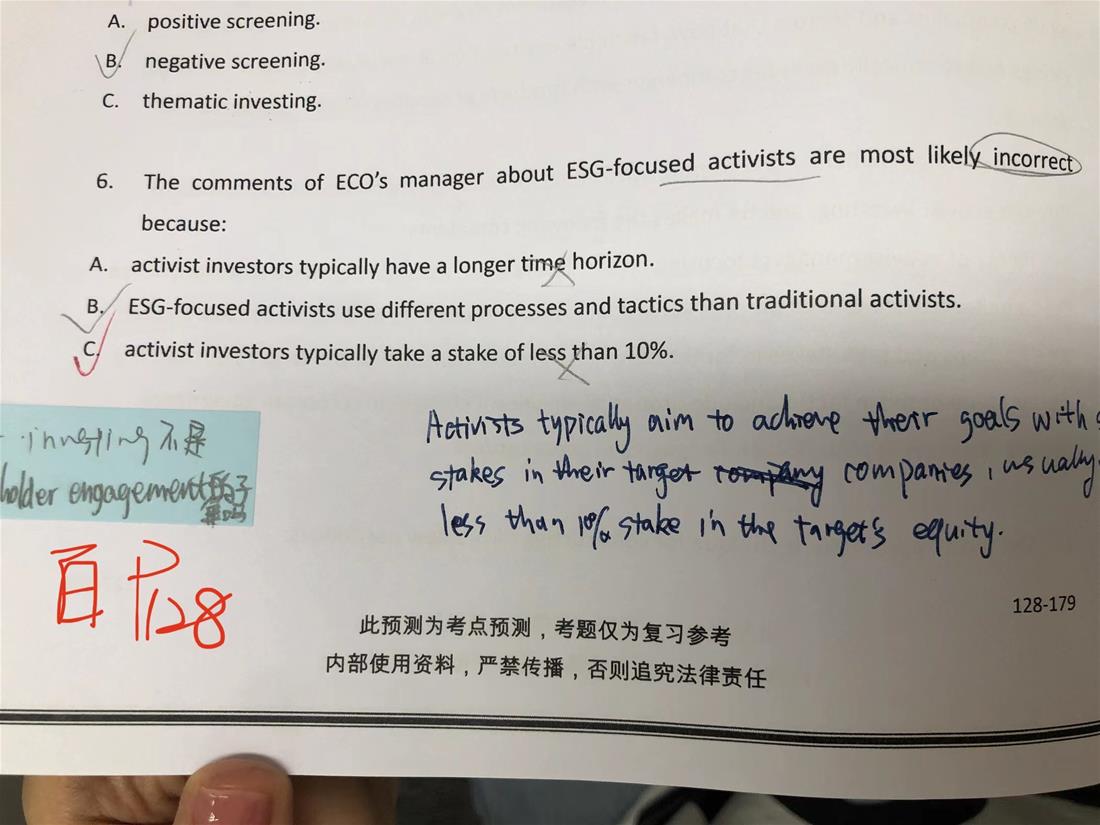 A. positive screening.
B. negative screening.
C. thematic investing.
6. The comments of ECO's manager about ESG-focused activists are most likely incorrect
because:
A. activist investors typically have a longer time horizon.
B. ESG-focused activists use different processes and tactics than traditional activists.
C. activist investors typically take a stake of less than 10%.
investing 不是
holder engagement
Activists typically aim to achieve their goals with
stakes in their target companies, usually
less than 10% stake in the target's equity.
百 P128
128-179
此预测为考点预测，考题仅为复习参考
内部使用资料，严禁传播，否则追究法律责任